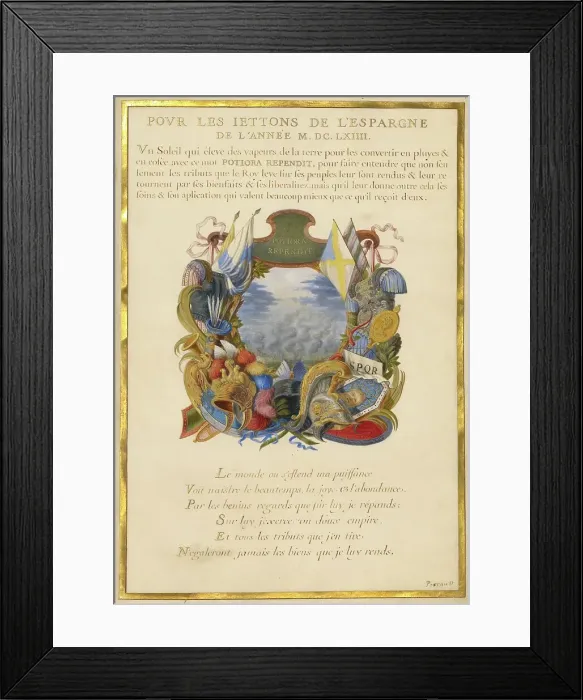 POVR LES IETTONS DE L'ESPARGNE
DE L'ANNÉE M.DC.LXIIII.
Vn Soleil qui éleve des vapeurs de la terre pour les convertir en pluyes &
en rosée avec ce mot POTIORA REPENDIT, pour faire entendre que non seu
lement les tributs que le Roy leve sur ses peuples leur sont rendus & leur re
tournent par ses bienfaits & ses liberalitez mais qu'il leur donne outre cela ses
soins & son aplication qui valent beaucoup mieux que ce qu'il reçoit d'eux.
POTIORA
REPENDIT
SPQR
Le monde ou s'estend ma puissance
Voit naistre le beautemps, la joye et l'abondance.
Par les benins regards que sur luy je répands:
Sur luy j'exerce un doux empire,
Et tous les tributs que j'en tire,
N'égaleront jamais les biens que je luy rends.